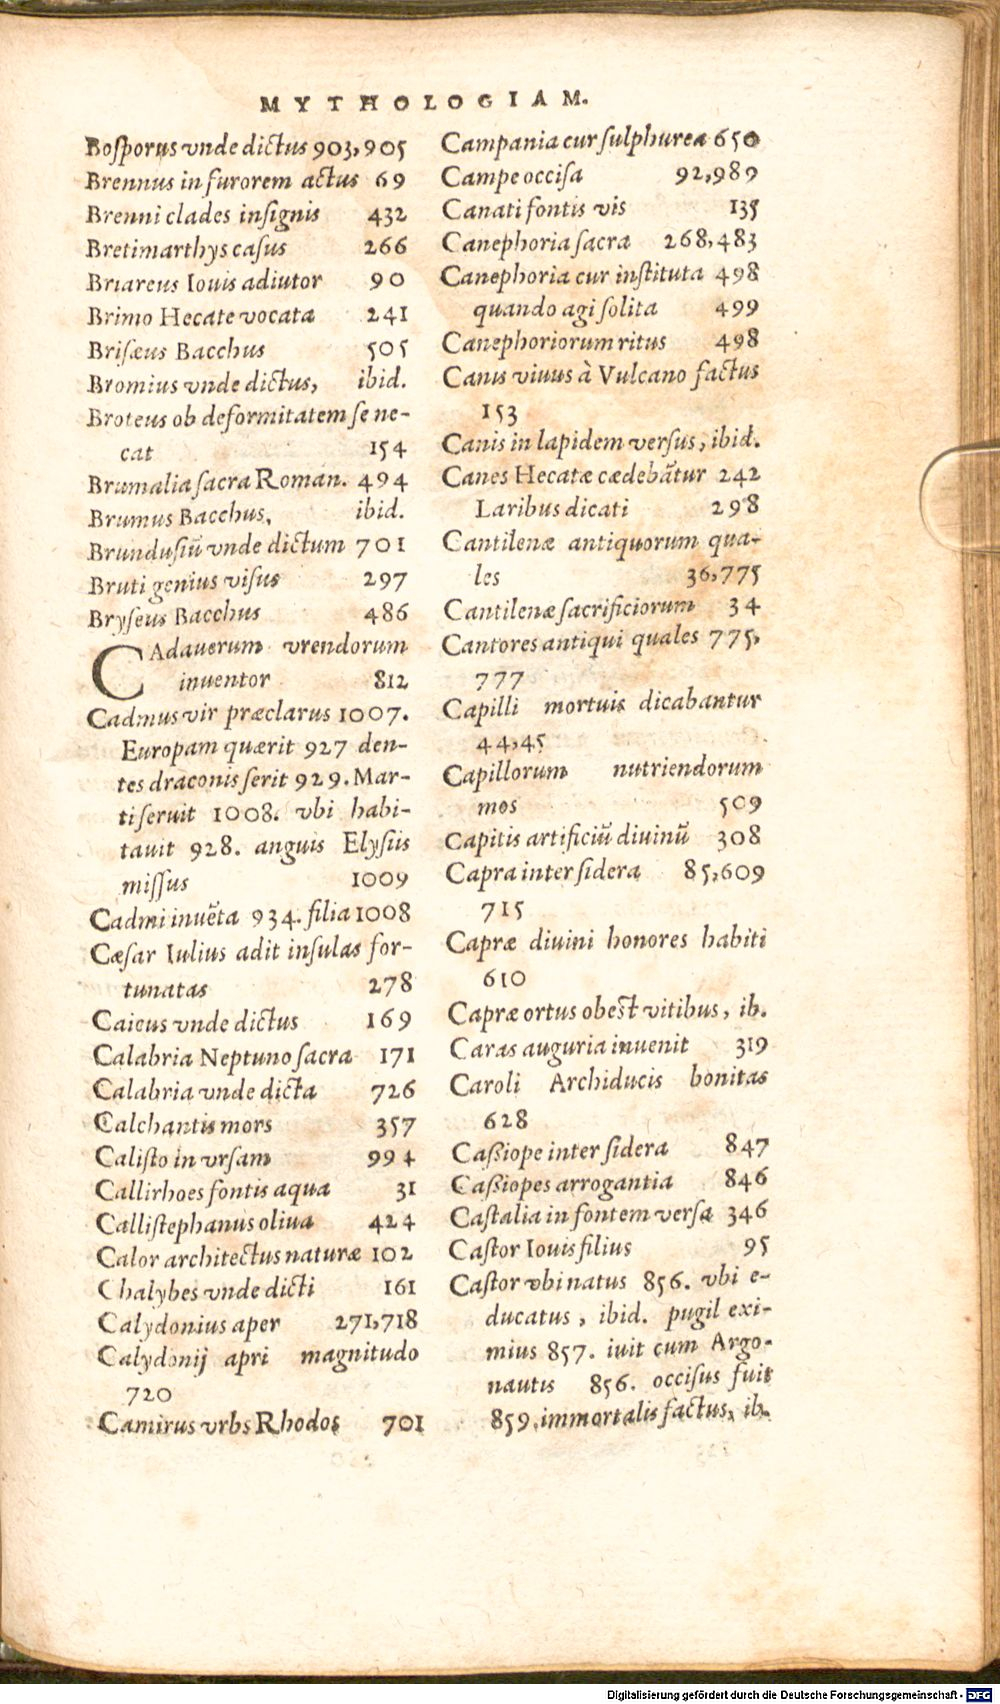 MYTHOLOGIAM.
Bosporus vnde dictus 903,905
Brennus in furorem actus 69
Brenni clades insignis 432
Bretimarthys casus 266
Briareus Iouis adiutor 90
Brimo Hecate vocata 241
Brisæus Bacchus 505
Bromius vnde dictus, ibid.
Broteus ob deformitatem se ne-
cat 154
Brumalia sacra Roman. 494
Brumus Bacchus, ibid.
Brundusiū vnde dictum 701
Bruti genius visus 297
Bryseus Bacchus 486
CAdauerum vrendorum
inuentor 812
Cadmus vir præclarus 1007.
Europam quærit 927 den-
tes draconis serit 929. Mar-
ti seruit 1008. vbi habi-
tauit 928. anguis Elysiis
missus 1009
Cadmi inuēta 934. filia 1008
Cæsar Iulius adit insulas for-
tunatas 278
Caicus vnde dictus 169
Calabria Neptuno sacra 171
Calabria vnde dicta 726
Calchantis mors 357
Calisto in vrsam 994
Callirhoes fontis aqua 31
Callistephanus oliua 424
Calor architectus naturæ 102
Chalybes vnde dicti 161
Calydonius aper 271,718
Calydonij apri magnitudo
720
Camirus vrbs Rhodos 701
Campania cur sulphurea 650
Campe occisa 92,989
Canati fontis vis 135
Canephoria sacra 268,483
Canephoria cur instituta 498
quando agi solita 499
Canephoriorum ritus 498
Canis viuus à Vulcano factus
153
Canis in lapidem versus, ibid.
Canes Hecatæ cædebātur 242
Laribus dicati 298
Cantilenæ antiquorum qua-
les 36,775
Cantilenæ sacrificiorum 34
Cantores antiqui quales 775,
777
Capilli mortuis dicabantur
44,45
Capillorum nutriendorum
mos 509
Capitis artificiū diuinū 308
Capra inter sidera 85,609
715
Capræ diuini honores habiti
610
Capræ ortus obest vitibus, ib.
Caras auguria inuenit 319
Caroli Archiducis bonitas
628
Caßiope inter sidera 847
Caßiopes arrogantia 846
Castalia in fontem versa 346
Castor Iouis filius 95
Castor vbi natus 856. vbi e-
ducatus, ibid. pugil exi-
mius 857. iuit cum Argo-
nautis 856. occisus fuit
859. immortalis factus, ib.
Digitalisierung gefördert durch die Deutsche Forschungsgemeinschaft - DFG